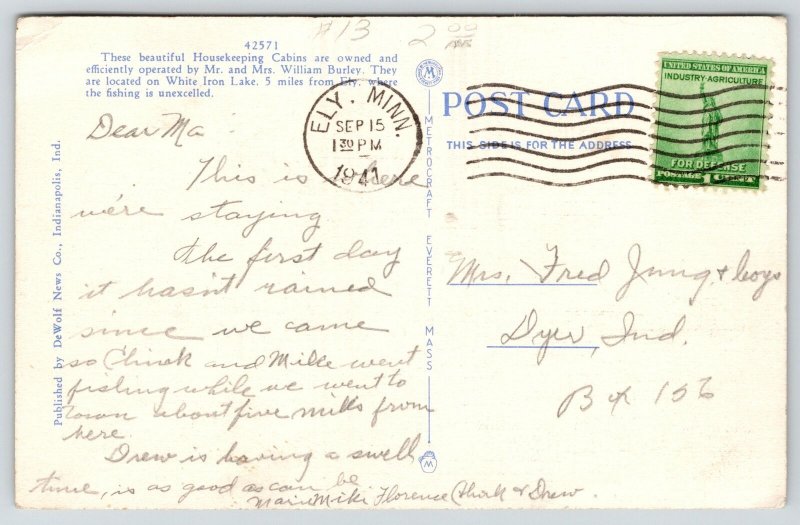 #13 2 00
42571
These beautiful Housekeeping Cabins are owned and
efficiently operated by Mr. and Mrs. William Burley. They
are located on White Iron Lake, 5 miles from Ely, where
the fishing is unexcelled.
Dear Ma
This is where
we're staying
the first day
it hasn't rained
since we came
so Chick and Mike went
fishing while we went to
town about five miles from
here.
Drew is having a swell
time, is as good as can be
Marie Mike Florence Chick & Drew.
Published by DeWolf News Co., Indianapolis, Ind.
METROCRAFT EVERETT MASS
M
ELY, MINN.
SEP 15
1 30 PM
1941
POST CARD
THIS SIDE IS FOR THE ADDRESS
UNITED STATES OF AMERICA
INDUSTRY·AGRICULTURE
FOR DEFENSE
POSTAGE 1 CENT
Mrs. Fred Jung & boys
Dyer, Ind.
Bx 156